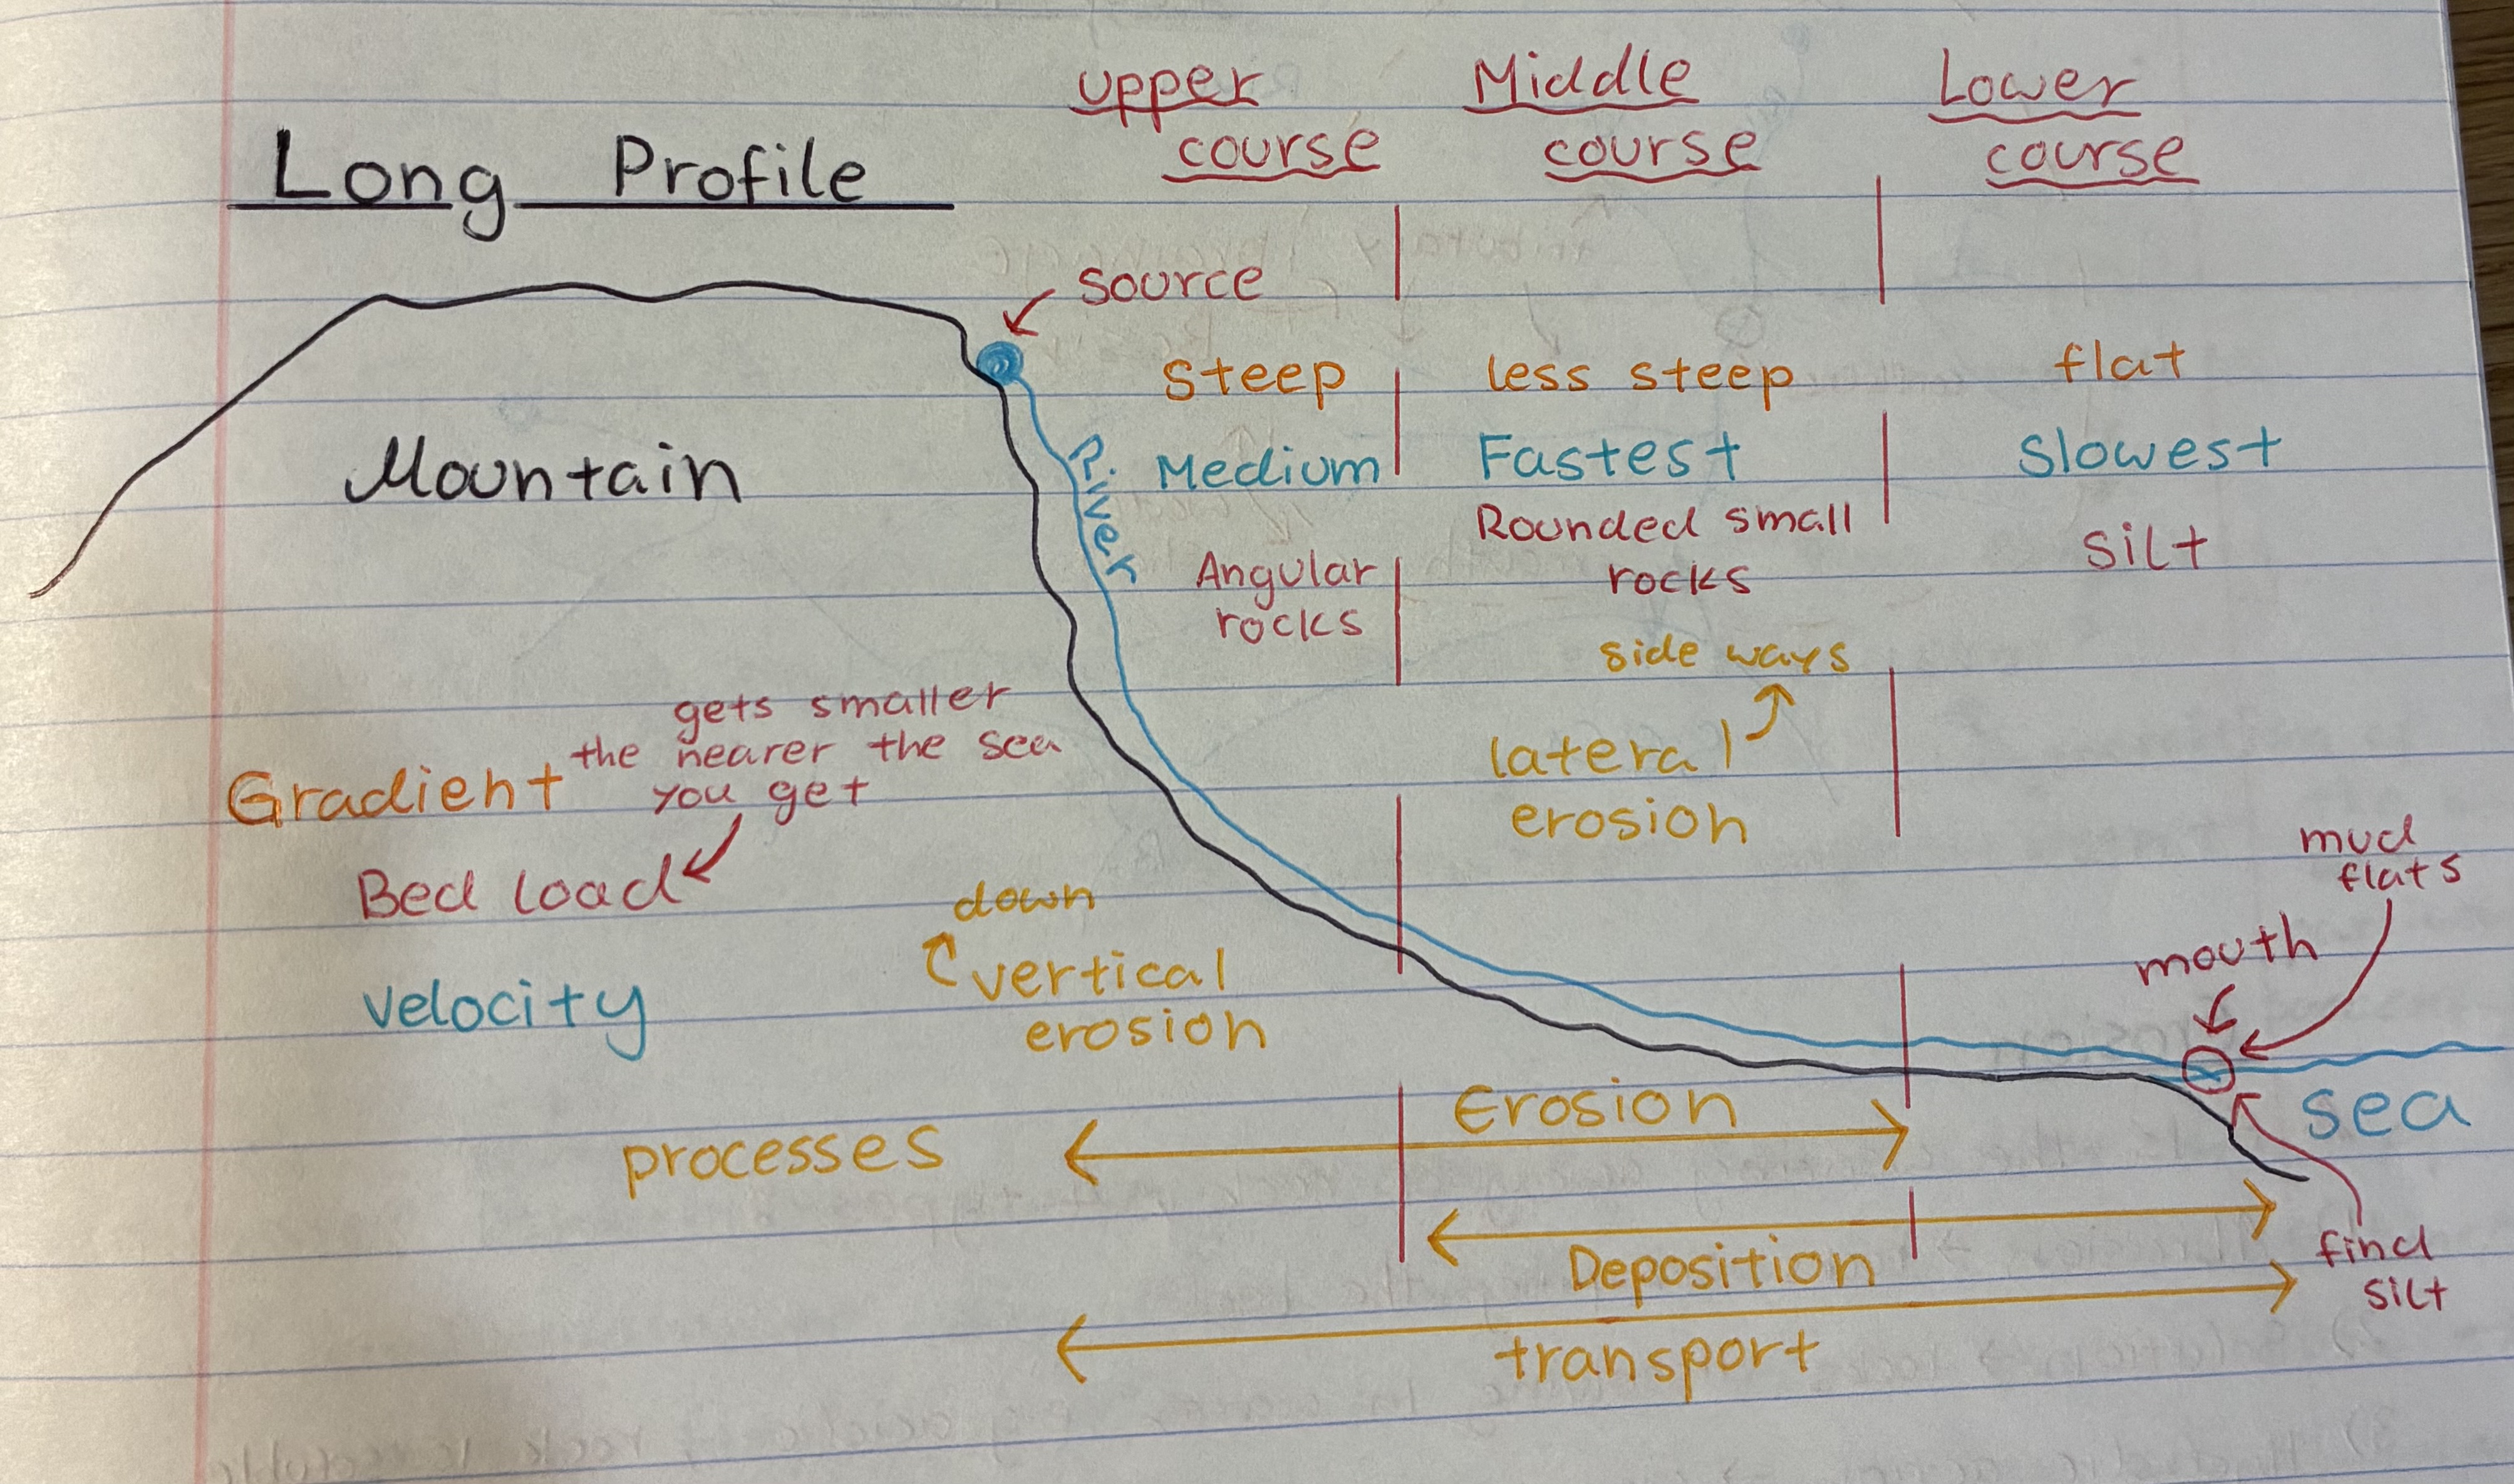 Long Profile
upper
course
Middle
course
Lower
course
source
steep
less steep
flat
Mountain
River
Medium
Fastest
slowest
Angular
rocks
Rounded small
rocks
silt
side ways
lateral
erosion
gets smaller
the nearer the sea
you get
Gradient
Bed load
velocity
down
vertical
erosion
mud
flats
mouth
sea
processes
Erosion
Deposition
find
silt
transport